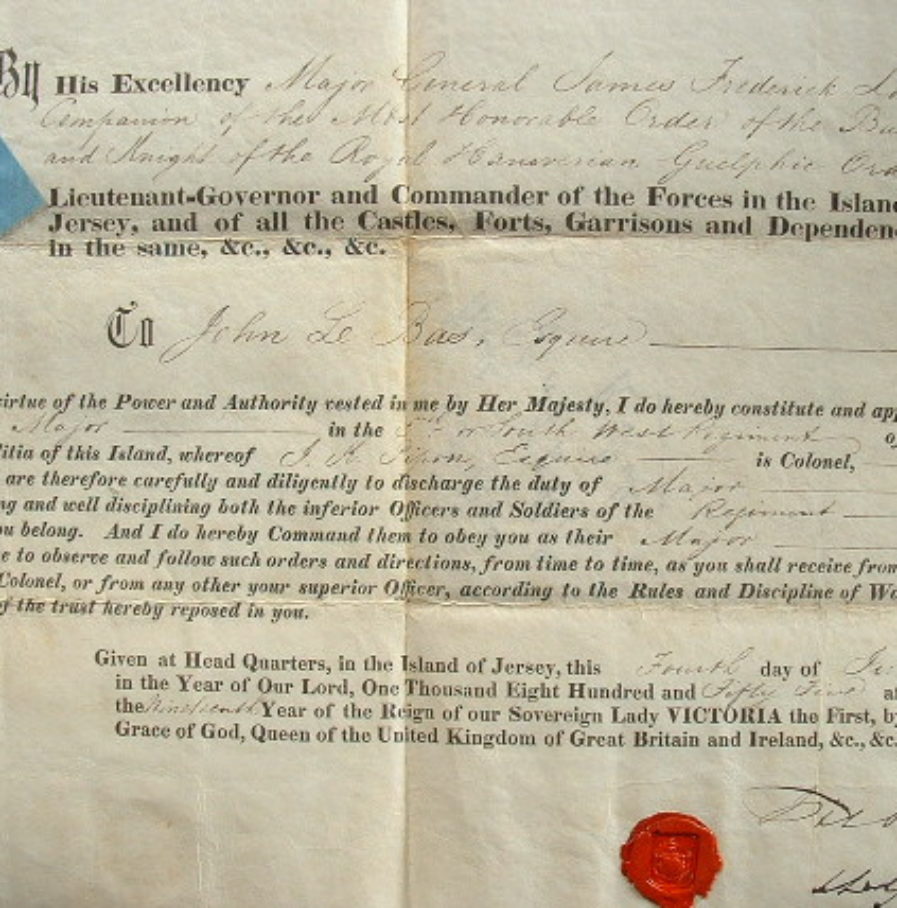 By His Excellency Major General James Frederick
Companion of the Most Honorable Order of the Ba
and Knight of the Royal Hanoverian Guelphic Ord
Lieutenant-Governor and Commander of the Forces in the Island
Jersey, and of all the Castles, Forts, Garrisons and Dependenc
in the same, &c., &c., &c.
To John Le Bas, Esquire
virtue of the Power and Authority vested in me by Her Majesty, I do hereby constitute and app
Major in the or South West Regiment o
litia of this Island, whereof J. Esquire is Colonel,
are therefore carefully and diligently to discharge the duty of Major
ng and well disciplining both the inferior Officers and Soldiers of the Regiment
ou belong. And I do hereby Command them to obey you as their Major
e to observe and follow such orders and directions, from time to time, as you shall receive from
Colonel, or from any other your superior Officer, according to the Rules and Discipline of Wa
of the trust hereby reposed in you.
Given at Head Quarters, in the Island of Jersey, this Fourth day of
in the Year of Our Lord, One Thousand Eight Hundred and Fifty Five a
the Nineteenth Year of the Reign of our Sovereign Lady VICTORIA the First, by
Grace of God, Queen of the United Kingdom of Great Britain and Ireland, &c., &c.